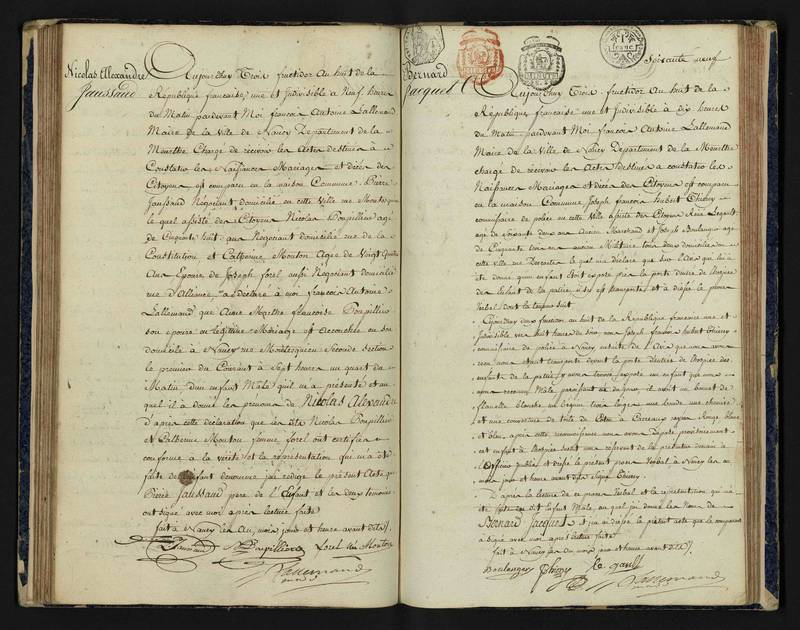 Nicolas Alexandre
Jaussaud
Aujourdhuy Trois fructidor an huit de la
République francaise, une et Indivisible à Neuf heures
du Matin pardevant Moi françois Antoine Lallemand
Maire de la Ville de Nancy Departement de la
Meurthe Chargé de recevoir les Actes destinés à
Constater les Naissances Mariages et décès des
Citoyens est comparu en la maison Commune Pierre
Jaussaud Négociant domicilié en cette Ville rue
le quel assisté des Citoyens Nicolas Poupillier agé
de Cinquante huit ans Negociant domicilié rue de la
Constitution et Catherine Mouton Agée de Vingt
Ans Epouse de Joseph forel aussi Négociant domicilié
rue d'Alliance, a déclaré à moi françois Antoine
Lallemand que Anne Marthe françoise Poupillier
son épouse en légitime Mariage est accouchée en son
domicile à Nancy rue Montesquieu Seconde section
le premier du Courant à Sept heures un quart du
Matin d'un enfant Male qu'il m'a présenté et au
quel il a donné les prenoms de Nicolas Alexandre
D'après cette déclaration que les Nicolas Poupillier
et Catherine Mouton femme forel ont certifiée
conforme à la vérité et la représentation qui m'a été
faite de l'Enfant dénommé j'ai rédigé le présent Acte que
Pierre Jaussaud pere de l'Enfant et les deux témoins
ont signé avec moi après lecture faite
fait à Nancy les An, mois jour et heure avant dits
Jaussaud Poupillier forel née Mouton
Lallemand
Soixante neuf
1 franc
Bernard
Jacquel
Aujourdhuy Trois fructidor an huit de la
République française une et Indivisible à dix heures
du Matin pardevant Moi françois Antoine Lallemand
Maire de la Ville de Nancy Departement de la Meurthe
chargé de recevoir les Actes destinés a constater les
Naissances Mariages et décès des Citoyens est comparu
en la maison Commune Joseph françois hubert Thiery
commissaire de police en cette Ville assisté des Citoyens
agé de Soixante deux ans Ancien Marchand et Joseph Boulanger agé
de Cinquante trois ans ancien Militaire tous deux domiciliés en
cette Ville lequel m'a déclaré que sur l'avis qui lui a
été donné qu'un enfant étoit exposé près la porte d'entrée de l'hospice
des Enfants de la patrie, il s'y est transporté et a dressé le procès
Verbal dont la teneur suit
Cejourdhuy deux fructidor an huit de la République française une et
Indivisible sur huit heures du soir, nous Joseph françois hubert Thiery
commissaire de police à Nancy instruit de l'avis que nous avons
reçu nous étant transporté devant la porte d'entrée de l'hospice des
enfants de la patrie y avons trouvé exposé un enfant que nous
avons reconnu Male paraissant né du jour, il avoit un bonnet de
flanelle blanche un béguin trois langes une chemise
et une couverture de toile de Coton à Carreaux rayés Rouge blanc
et bleu, après cette reconnoissance nous avons déposé provisoirement
cet enfant à l'hospice
l'officier public et dressé le présent procès Verbal à Nancy les an
mois jour et heure avant dits Signé Thiery.
D'après la lecture de ce procès Verbal et la représentation qui m'a
été faite du dit Enfant Male, au quel j'ai donné les Noms de
Bernard Jacquel, et j'ai rédigé le présent acte que le comparant
a signé avec moi après lecture faite
fait à Nancy les An mois jour et heure avant dits
Boulanger Thiery
Lallemand